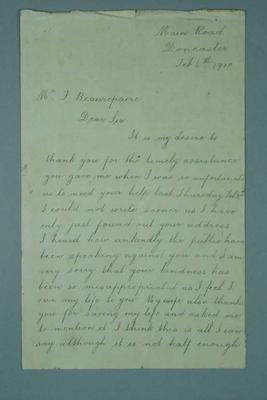 Main Road
Doncaster
Feb 6th 1910
Mr F Beaurepaire
Dear Sir
It is my desire to
thank you for the timely assistance
you gave me when I was so unfortunate
as to need your help last Thursday Feb 3rd
I could not write sooner as I have
only just found out your address
I heard how unkindly the public have
been speaking against you and I am
very sorry that your kindness has
been so misappropriated as I feel I
owe my life to you My wife also thanks
you for saving my life and asked me
to mention it I think this is all I can
say although it is not half enough